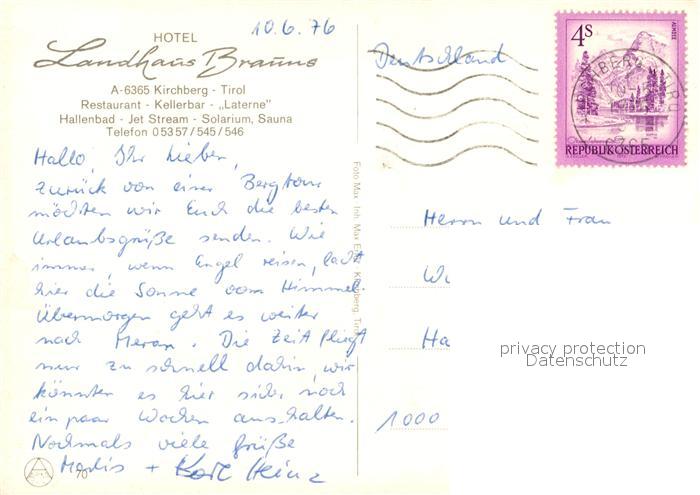 10.6.76
HOTEL
Landhaus Brauns
A-6365 Kirchberg - Tirol
Restaurant - Kellerbar - „Laterne"
Hallenbad - Jet Stream - Solarium, Sauna
Telefon 0 53 57 / 545 / 546
Hallo, Ihr Lieben,
zurück von einer Bergtour
möchten wir Euch die besten
Urlaubsgrüße senden. Wie
immer, wenn Engel reisen, lacht
hier die Sonne vom Himmel.
Übermorgen geht es weiter
nach Meran. Die Zeit fliegt
nur zu schnell dahin, wir
könnten es hier sicher noch
ein paar Wochen aushalten.
Nochmals viele Grüße
+ Karl Heinz
Foto Max Inh. Max Kirchberg, Tirol
Deutschland
4S
ALMSEE
REPUBLIK ÖSTERREICH
KIRCHBERG
Herrn und Frau
W
Ha
1000
privacy protection
Datenschutz